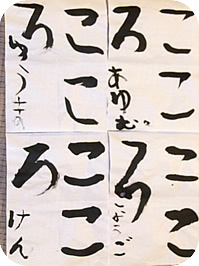 ここ
ろ あゆむ
ここ
ろ ゆうき
ここ
ろ
ここ
ろ けん